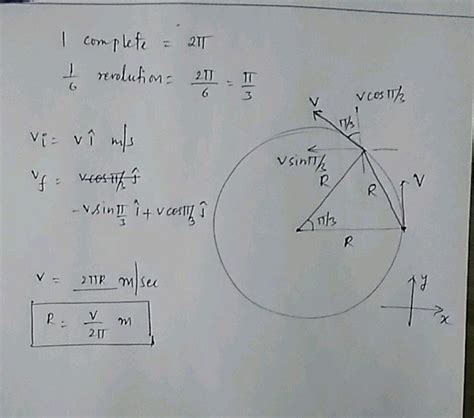 1 complete = 2π
1/6 revolution = 2π/6 = π/3
vi = v î m/s
vf = v cos π/3 ĵ
-v sin π/3 î + v cos π/3 ĵ
v = 2πR m/sec
R = v/2π m
v cos π/3
V
π/3
v sin π/3
R
R
V
π/3
R
y
x